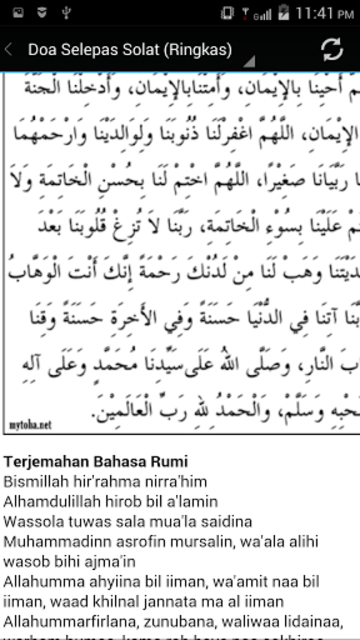 11:41 PM
Doa Selepas Solat (Ringkas)
أَحْيِنَا بِالْإِيْمَانِ، وَأَمِتْنَابِالإِيْمَانِ، وَأَدْخِلْنَا الْجَنَّةَ
الإِيْمَانِ، اللَّهُمَّ اغْفِرْلَنَا ذُنُوبَنَا وَلِوَالِدَيْنَا وَارْحَمْهُمَا
رَبَّيَانَا صَغِيْرًا، اللَّهُمَّ اخْتِمْ لَنَا بِحُسْنِ الْخَاتِمَةِ وَلَا
عَلَيْنَا بِسُوْءِ الْخَاتِمَةِ، رَبَّنَا لاَ تُزِغْ قُلُوبَنَا بَعْدَ
وَهَبْ لَنَا مِنْ لَدُنْكَ رَحْمَةً إِنَّكَ أَنْتَ الْوَهَّابُ
آتِنَا فِي الدُّنْيَا حَسَنَةً وَفِي الأَخِرَةِ حَسَنَةً وَقِنَا
النَّارِ، وَصَلَّى اللهُ عَلَى سَيِّدِنَا مُحَمَّدٍ وَعَلَى آلِهِ
وَسَلَّمْ، وَالْحَمْدُ لِلهِ رَبِّ الْعَالَمِيْنَ.
mytoha.net
Terjemahan Bahasa Rumi
Bismillah hir'rahma nirra'him
Alhamdulillah hirob bil a'lamin
Wassola tuwas sala mua'la saidina
Muhammadinn asrofin mursalin, wa'ala alihi
wasob bihi ajma'in
Allahumma ahyiina bil iiman, wa'amit naa bil
iiman, waad khilnal jannata ma al iiman
Allahummarfirlana, zunubana, waliwaa lidainaa,